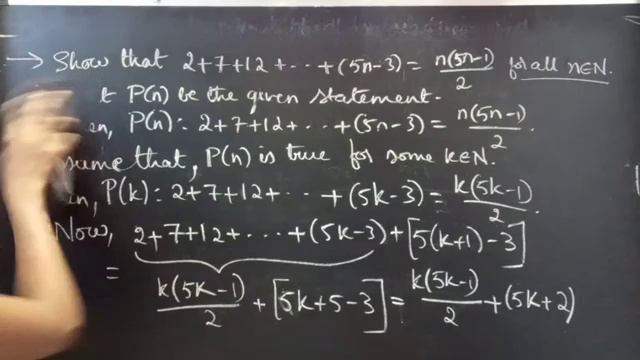 → Show that 2+7+12+ ··· +(5n−3) = n(5n−1)/2 for all n∈N.
t P(n) be the given statement.
en, P(n): 2+7+12+ ··· +(5n−3) = n(5n−1)/2.
sume that, P(n) is true for some k∈N.
en, P(k): 2+7+12+ ··· +(5k−3) = k(5k−1)/2.
Now, 2+7+12+ ··· +(5k−3) + [5(k+1)−3]
= k(5k−1)/2 + [5k+5−3] = k(5k−1)/2 + (5k+2)